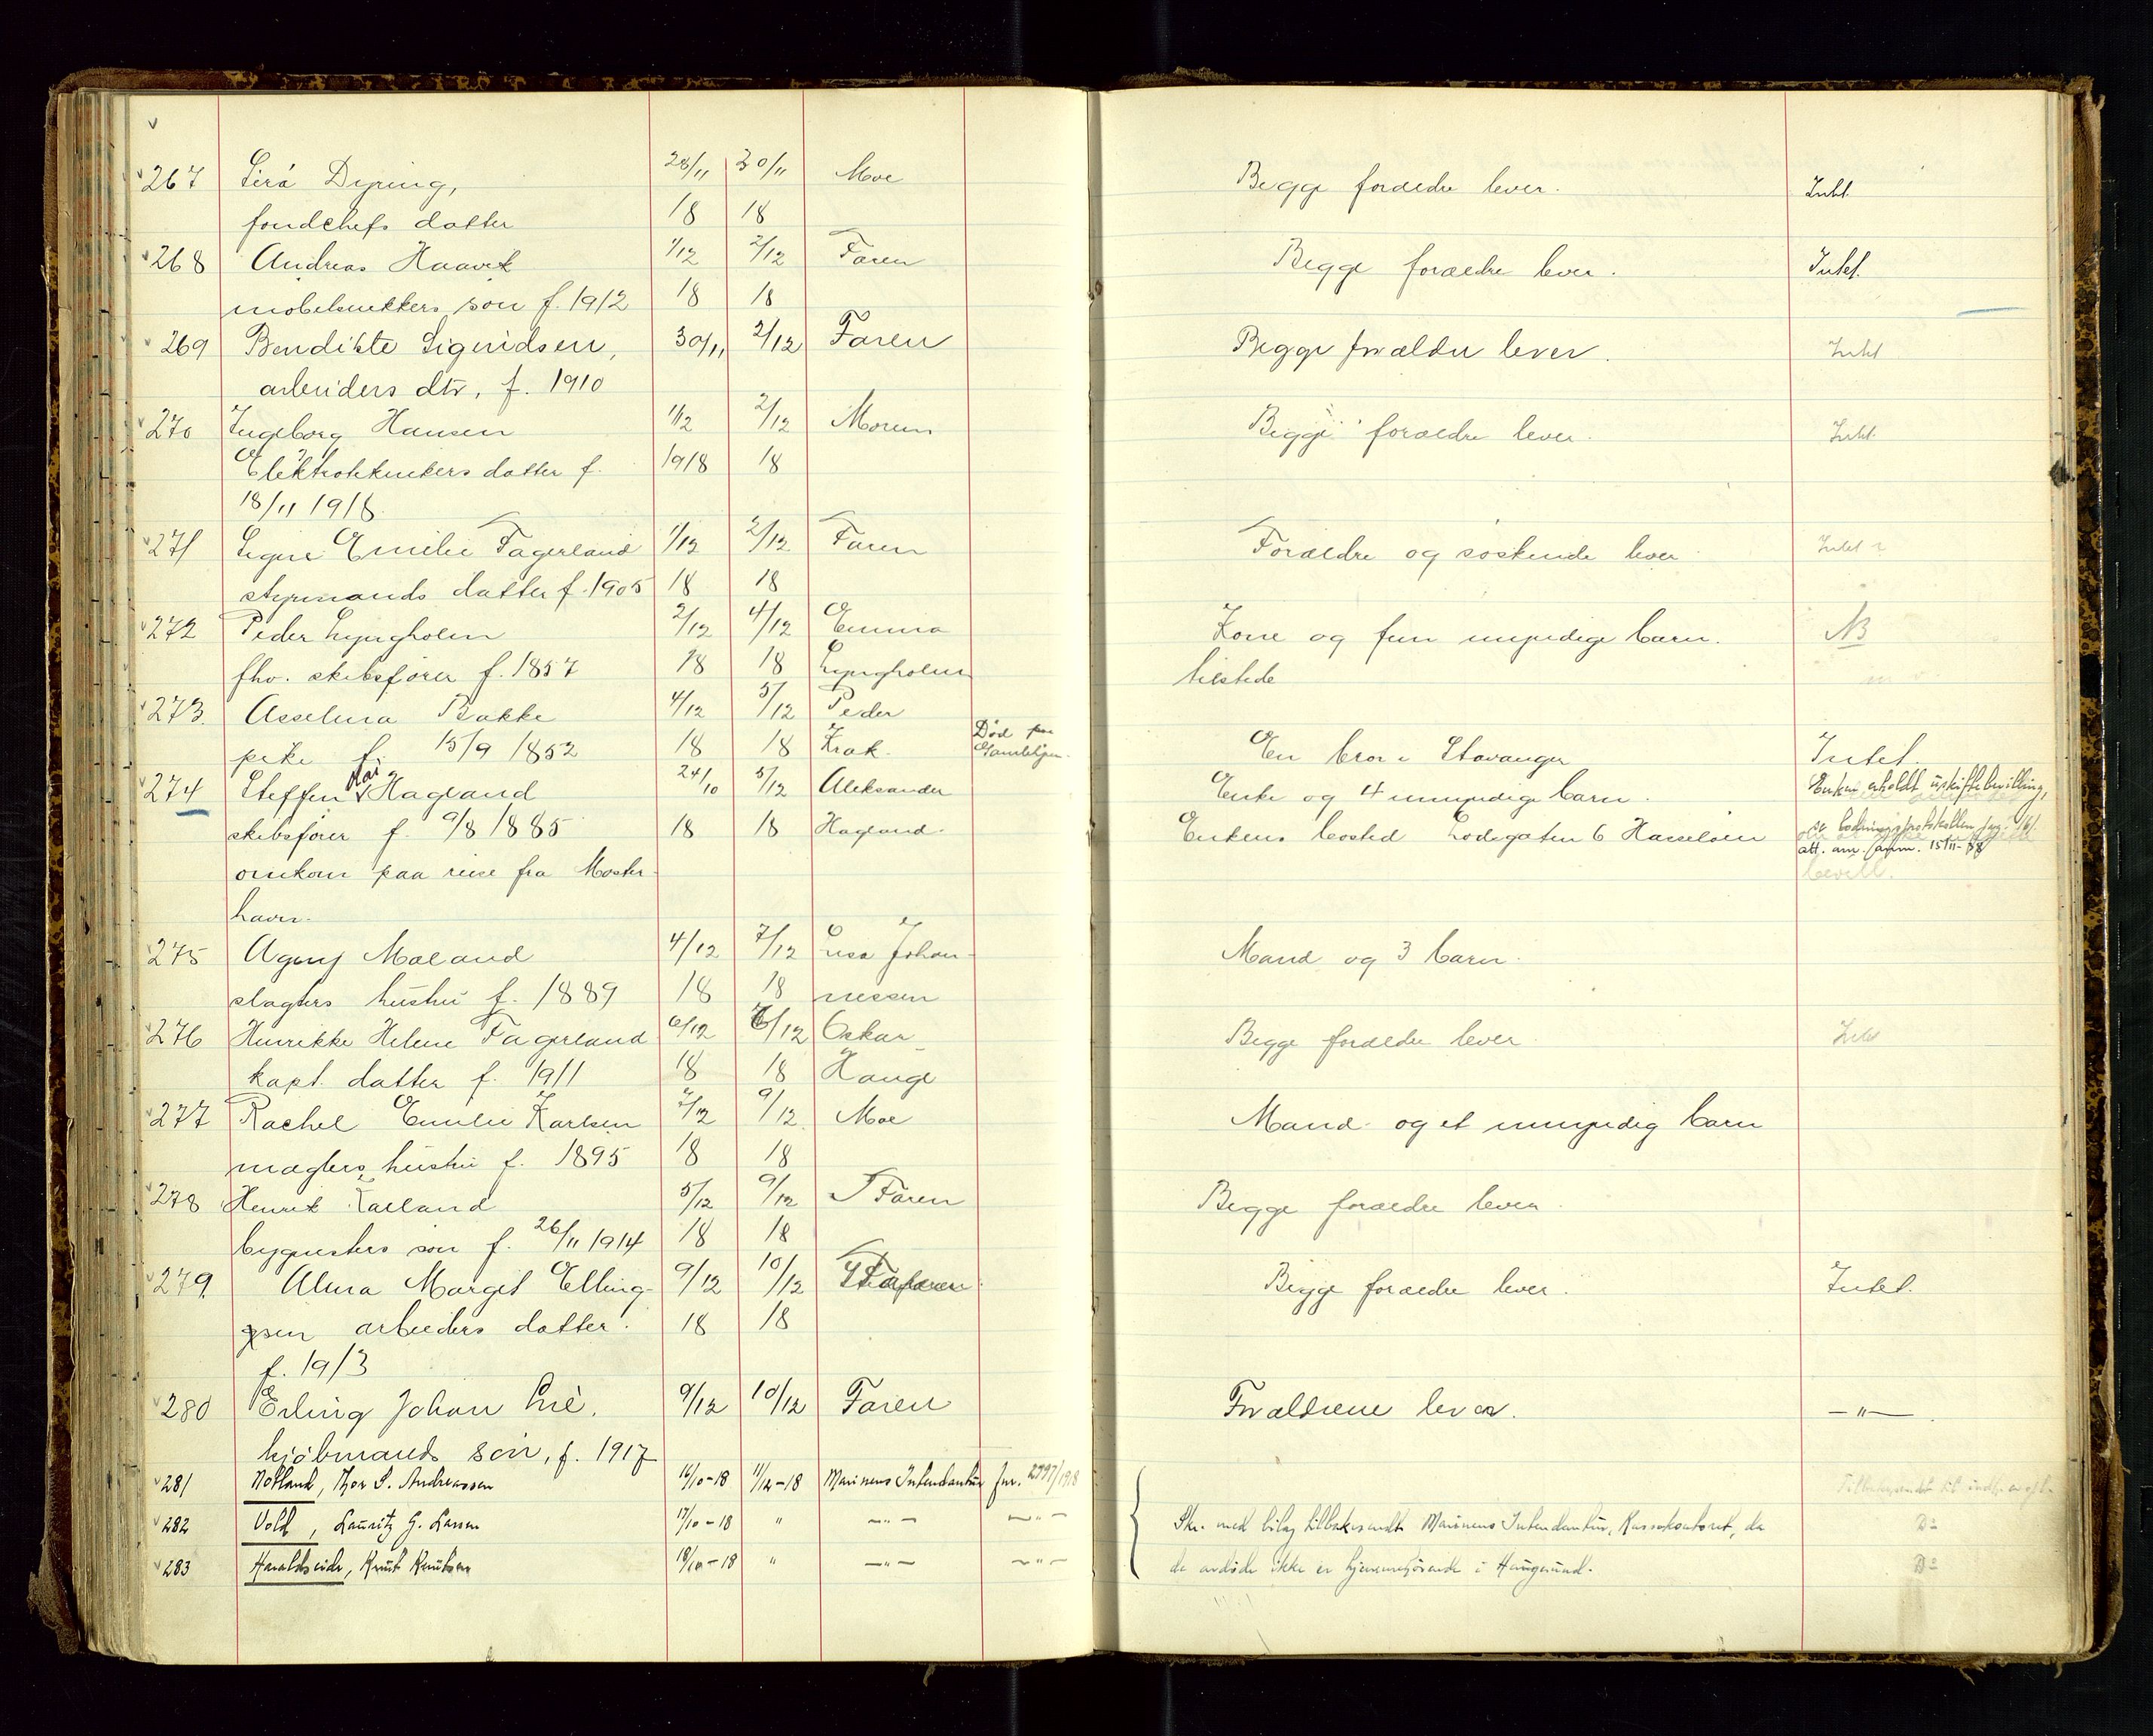 267 Dyring, 28/11 30/11 Moe Begge forældre lever. Intet
fondchefs datter 18 18
268 Andreas Haavik 1/12 2/12 Faren Begge forældre lever. Intet.
møbelsnekkers søn f. 1912 18 18
269 Bendikte Sigvidsen, 30/11 2/12 Faren Begge forælder lever. Intet
arbeiders dtr, f. 1910
270 Ingeborg Hansen 1/12 2/12 Moren Begge forældre lever. Intet.
Elektroteknikers datter f. 1918 18
18/11 1918.
271 Signe Emilie Fagerland 1/12 2/12 Faren Forældre og søskende lever Intet
styrmands datter f. 1905 18 18
272 Peder Lyngholm 2/12 4/12 Emma Kone og fem umyndige barn. NB
fhv. skibsfører f. 1857 18 18 Lyngholm tilstede
273. Asselina Bakke 4/12 5/12 Peder Død paa
pike f. 15/9 1852 18 18 Krak. Gamlehjem. En bror i Stavanger Intet.
274 Steffen Kai Hagland 24/10 5/12 Aleksander Enke og 4 umyndige barn. Enken erholdt uskiftebevilling,
skibsfører f. 9/8 1885 18 18 Hagland. Enkens bosted Lodsgaten 6 Hasseløen
omkom paa reise fra Moster-
havn.
275 Agny Moland 4/12 7/12 Lisa Johan- Mand og 3 barn.
slagters hustru f. 1889 18 18 nessen
276 Henrikke Helene Fagerland 6/12 6/12 Oskar Begge forældre lever Intet
kapt. datter f. 1911 18 18 Hauge
277 Rachel Emilie Karlsen 7/12 9/12 Moe Mand og et umyndig barn
mæglers hustru f. 1895 18 18
278 Henrik Kalland 5/12 9/12 Faren Begge forældre lever
bygmesters søn f. 26/11 1914 18 18
279. Alma Margit Elling- 9/12 10/12 Begge forældre lever. Intet.
sen arbeiders datter. 18 18
f. 1913
280 Erling Johan Lie, 9/12 10/12 Faren Forældrene lever. —"—
kjøbmands søn, f. 1917
281 Notland, Thor S. Andreassen 16/10-18 11/12-18 Marinens Intendantur Jnr. 2997/1918
282 Vold, Lauritz G. Larsen 17/10-18 " —"— —"— Skr. med bilag tilbakesendt Marinens Intendantur, Kassekontoret, da Do
283 Haraldseide, Knut Knutsen 18/10-18 " —"— —"— de avdøde ikke er hjemmehørende i Haugesund. Do